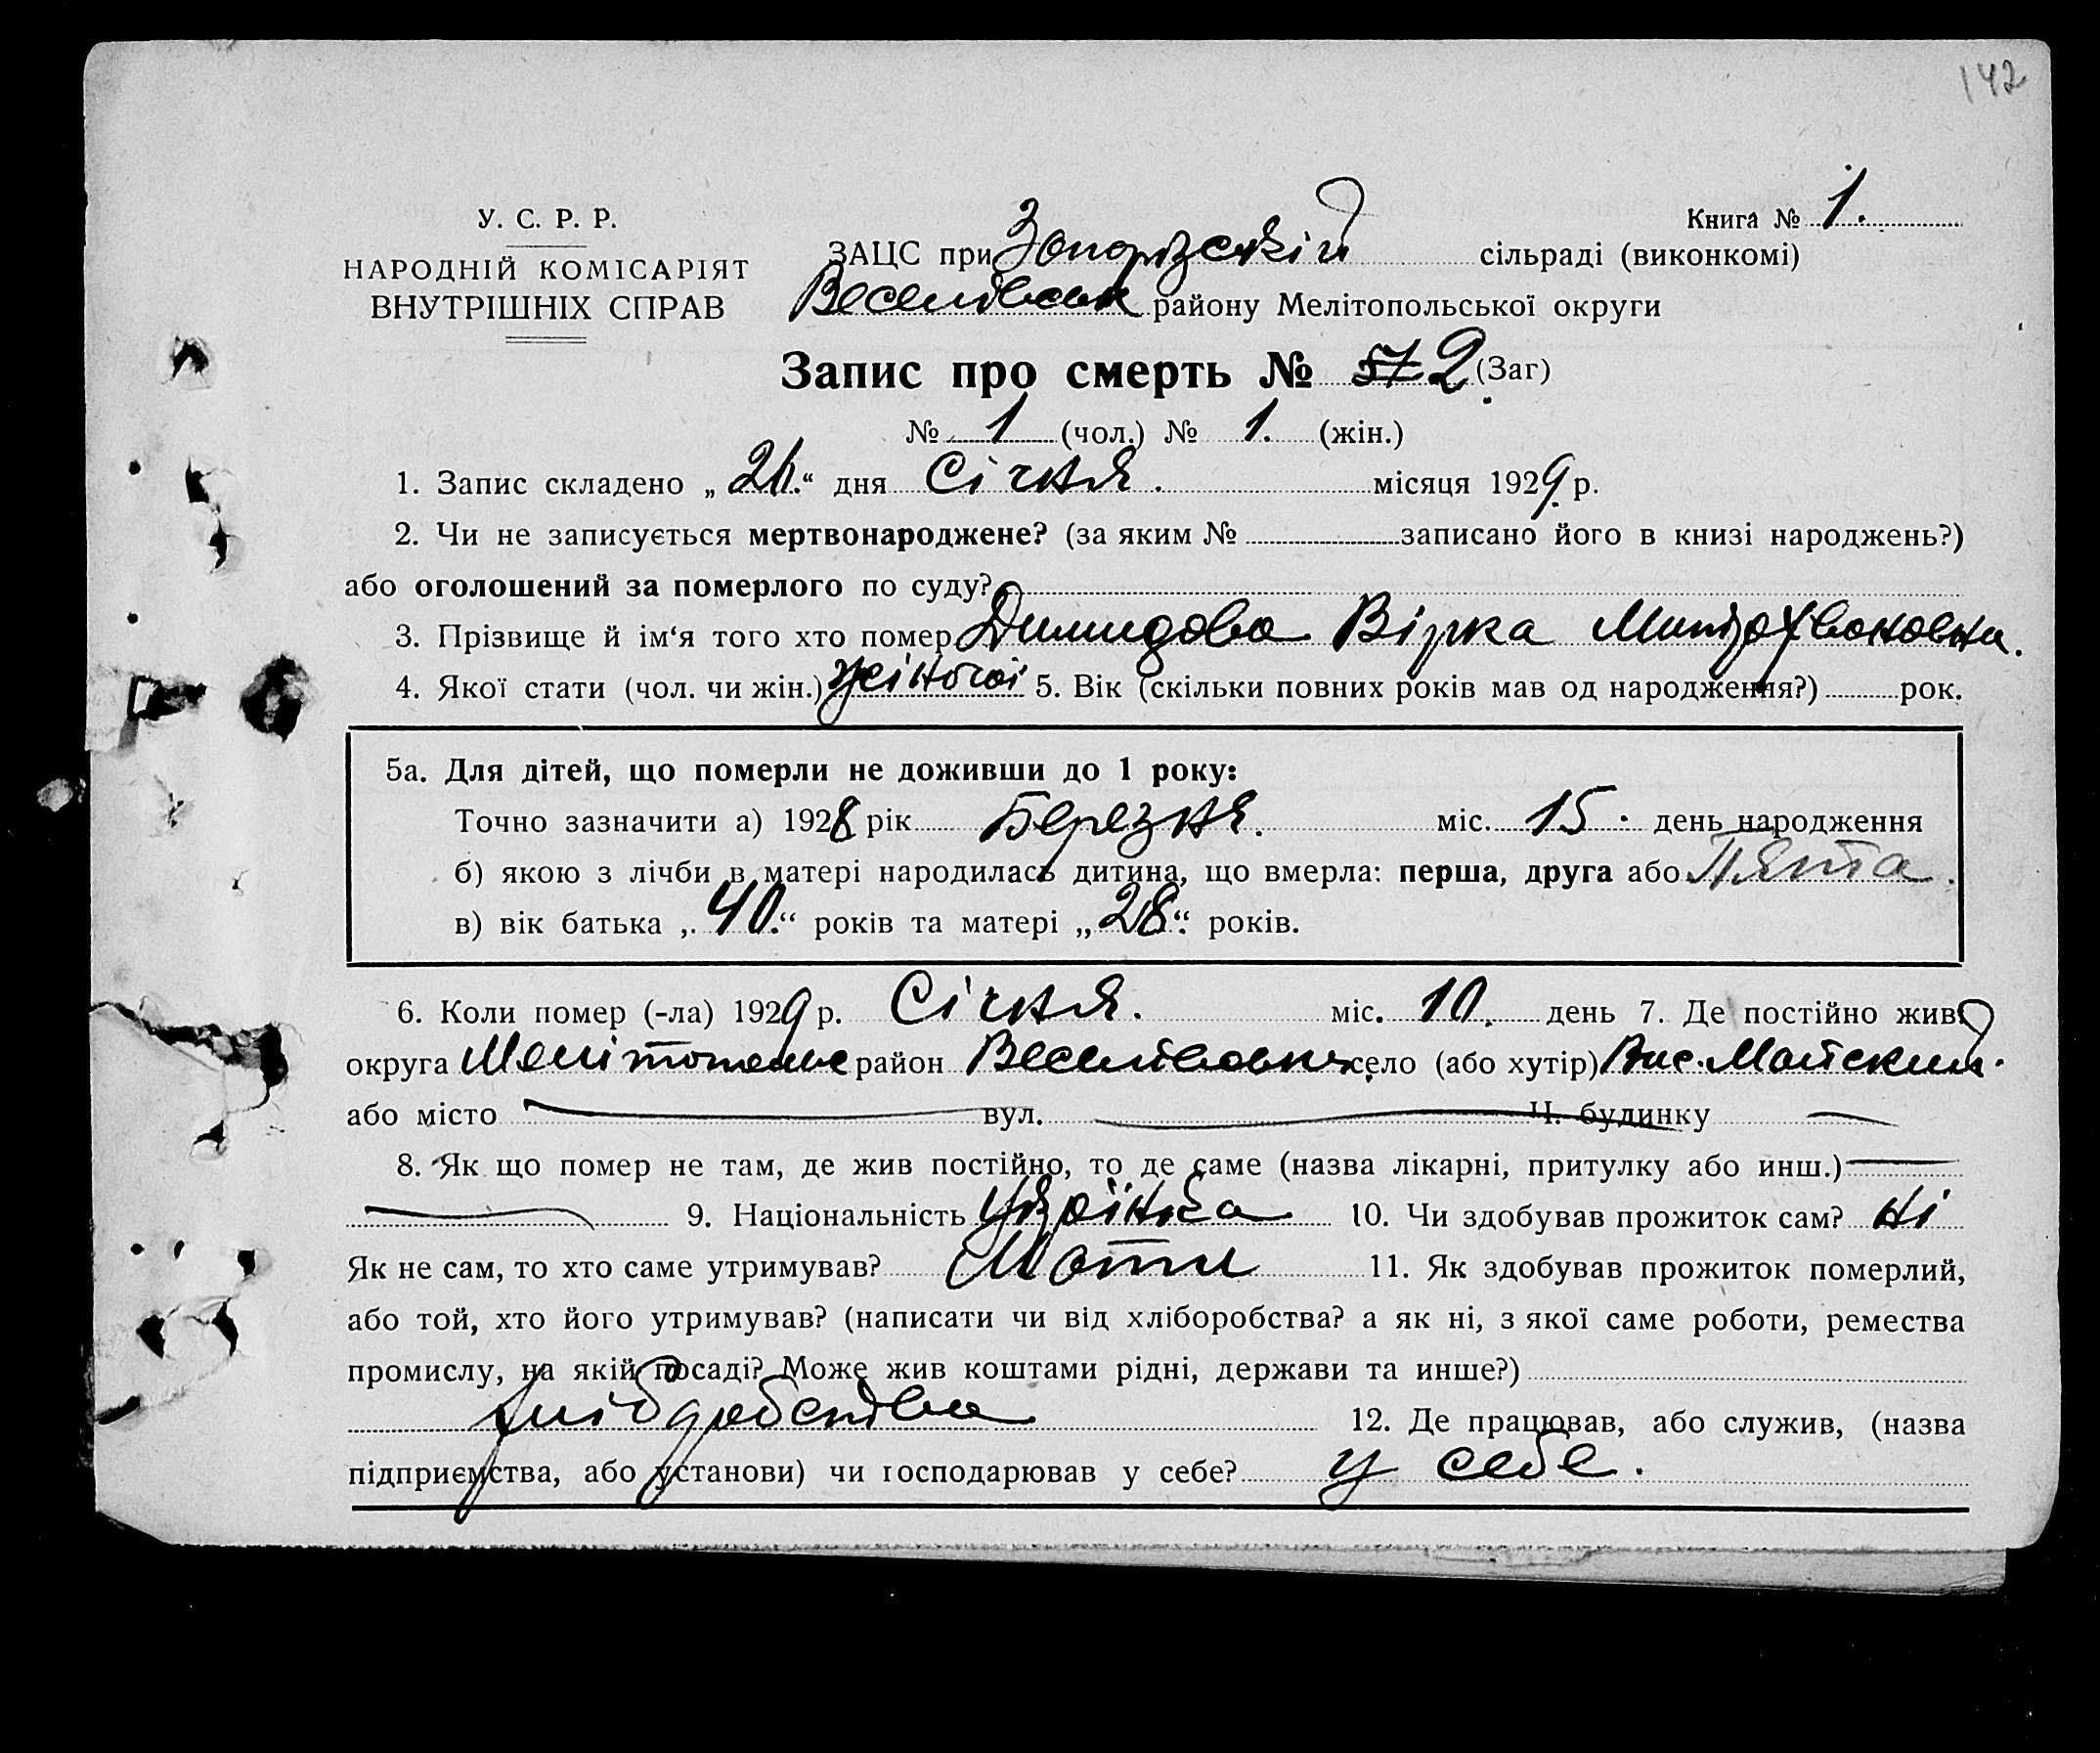 142
У. С. Р. Р.
НАРОДНІЙ КОМІСАРІЯТ
ВНУТРІШНІХ СПРАВ
Книга № 1.
ЗАЦС при Запорізский сільраді (виконкомі)
Веселівськ району Мелітопольської округи
Запис про смерть № 57 2 (Заг)
№ 1 (чол.) № 1. (жін.)
1. Запис складено „ “ дня Січня. місяця 1929 р.
2. Чи не записується мертвонароджене? (за яким № записано його в книзі народжень?)
або оголошений за померлого по суду?
3. Прізвище й ім‘я того хто помер Димидова Вірка Митрофановна.
4. Якої стати (чол. чи жін.) жіночої 5. Вік (скільки повних років мав од народження?) рок.
5а. Для дітей, що померли не доживши до 1 року:
Точно зазначити а) 1928 рік Березня. міс. 15. день народження
б) якою з лічби в матері народилась дитина, що вмерла: перша, друга або Пята.
в) вік батька „ 40.“ років та матері „28“. років.
6. Коли помер (-ла) 1929 р. Січня. міс. 10. день 7. Де постійно жив?
округа район село (або хутір) Вис. Майский.
або місто вул. Ч. будинку
8. Як що помер не там, де жив постійно, то де саме (назва лікарні, притулку або инш.)
9. Національність Укроїнка 10. Чи здобував прожиток сам? Ні
Як не сам, то хто саме утримував? Мати 11. Як здобував прожиток померлий,
або той, хто його утримував? (написати чи від хліборобства? а як ні, з якої саме роботи, ремества
промислу, на якій посаді? Може жив коштами рідні, держави та инше?)
12. Де працював, або служив, (назва
підприємства, або установи) чи господарював у себе? у себе.